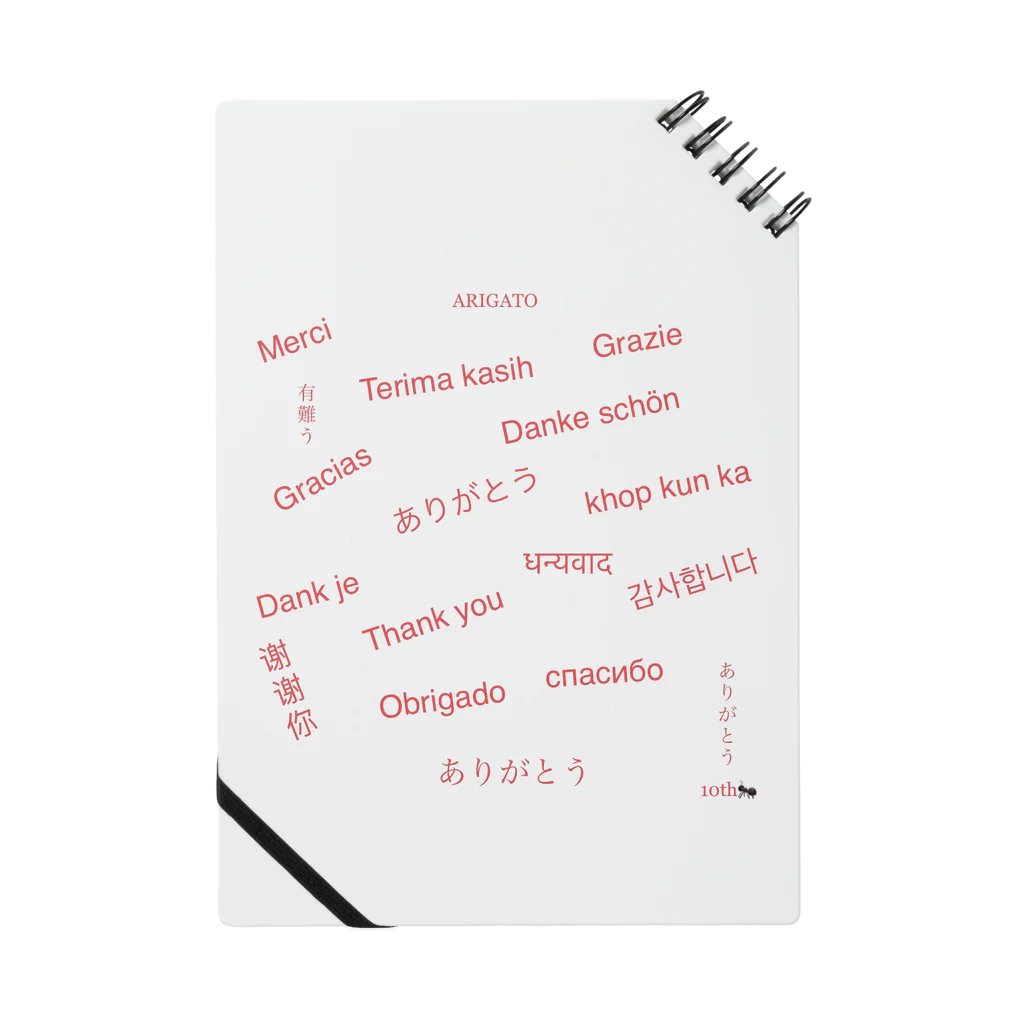 ARIGATO
Merci
Grazie
Terima kasih
有難う
Danke schön
Gracias
ありがとう
khop kun ka
धन्यवाद
감사합니다
Dank je
Thank you
谢谢你
Obrigado
спасибо
ありがとう
ありがとう
10th🐜